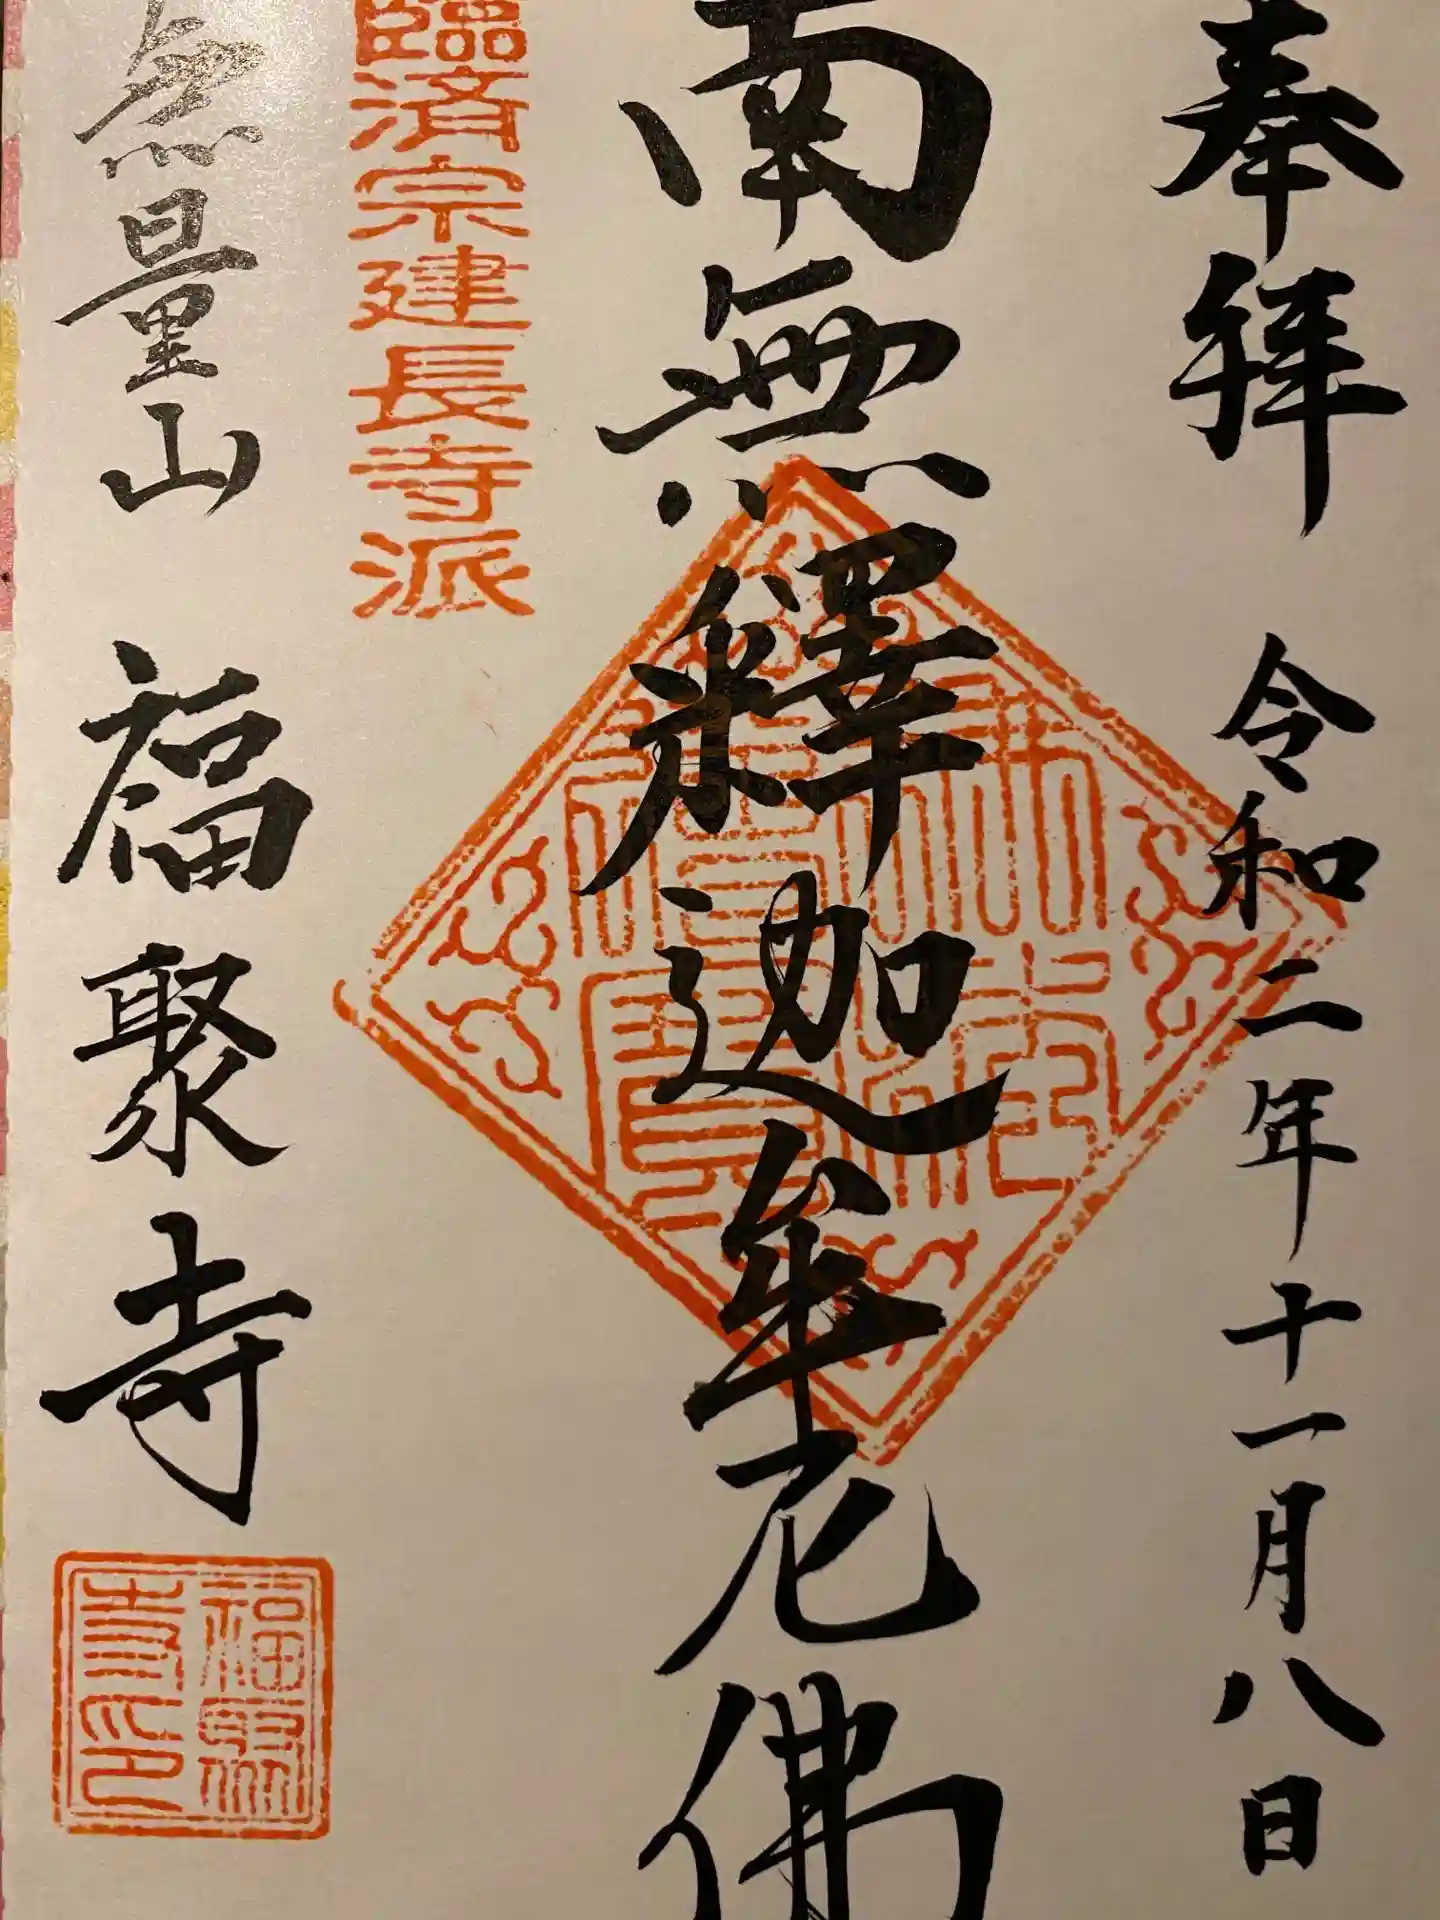 奉拜 令和二年十一月八日
南無釋迦牟尼佛
臨済宗建長寺派
無量山 福聚寺
佛法僧寶
福聚寺印